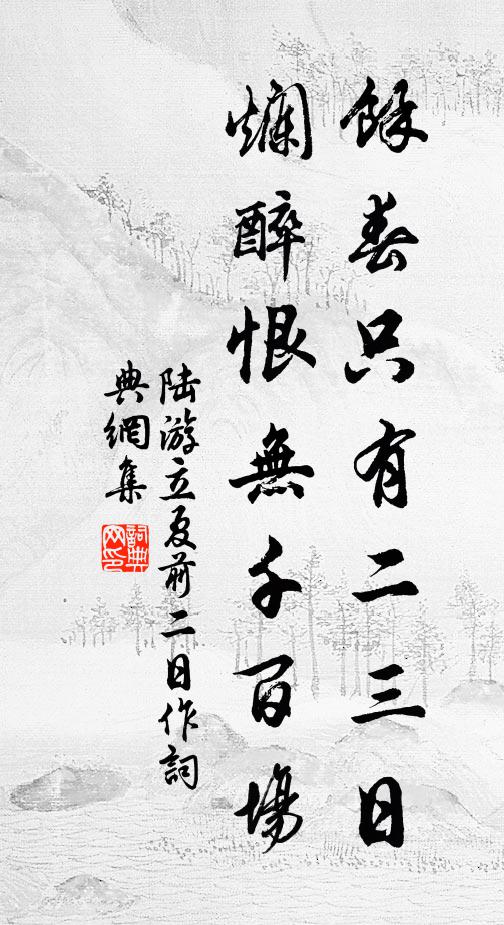 餘春只有二三日
爛醉恨無千百場
陸游立夏前二日作詞
典網集
詞典網印